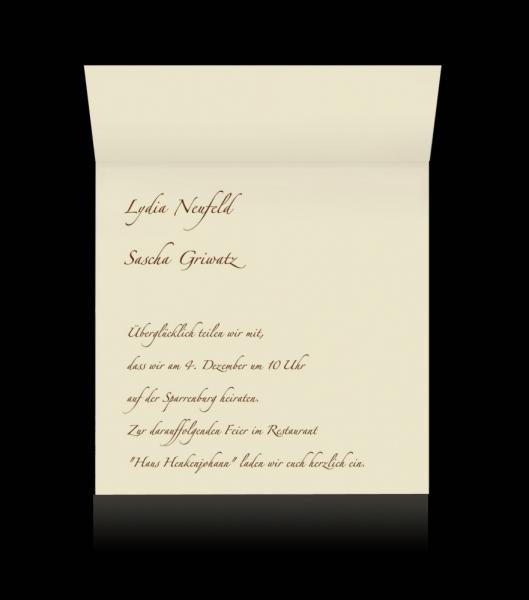 Lydia Neufeld
Sascha Griwatz
Überglücklich teilen wir mit,
dass wir am 4. Dezember um 10 Uhr
auf der Sparrenburg heiraten.
Zur darauffolgenden Feier im Restaurant
"Haus Henkenjohann" laden wir euch herzlich ein.